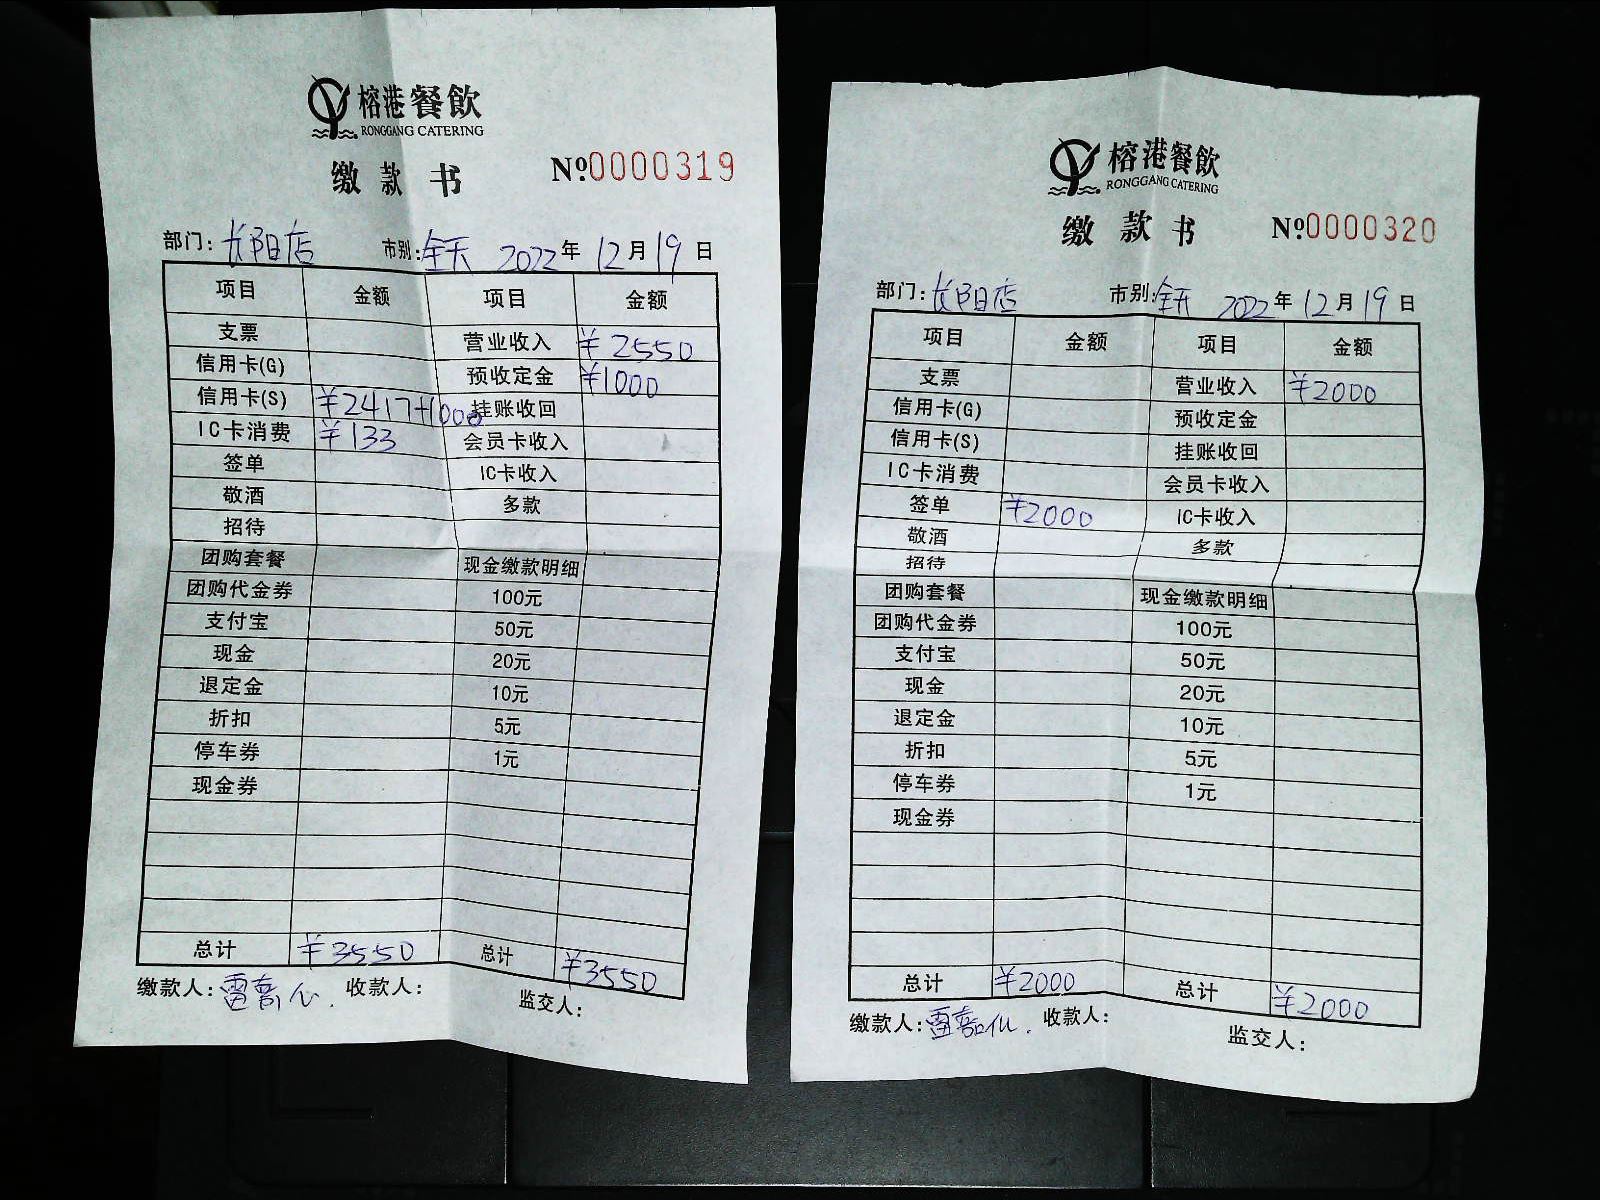 榕港餐飲
RONGGANG CATERING
缴款书 №0000319
部门: 长阳店 市别: 全天 2022年12月19日
项目 金额 项目 金额
支票 营业收入 ¥2550
信用卡(G) 预收定金 ¥1000
信用卡(S) ¥2417+1000 挂账收回
IC卡消费 ¥133 会员卡收入
签单 IC卡收入
敬酒 多款
招待
团购套餐 现金缴款明细
团购代金券 100元
支付宝 50元
现金 20元
退定金 10元
折扣 5元
停车券 1元
现金券
总计 ¥3550 总计 ¥3550
缴款人: 雷 收款人: 监交人:
榕港餐飲
RONGGANG CATERING
缴款书 №0000320
部门: 长阳店 市别: 全天 2022年12月19日
项目 金额 项目 金额
支票 营业收入 ¥2000
信用卡(G) 预收定金
信用卡(S) 挂账收回
IC卡消费 会员卡收入
签单 ¥2000 IC卡收入
敬酒 多款
招待
团购套餐 现金缴款明细
团购代金券 100元
支付宝 50元
现金 20元
退定金 10元
折扣 5元
停车券 1元
现金券
总计 ¥2000 总计 ¥2000
缴款人: 雷 收款人: 监交人: